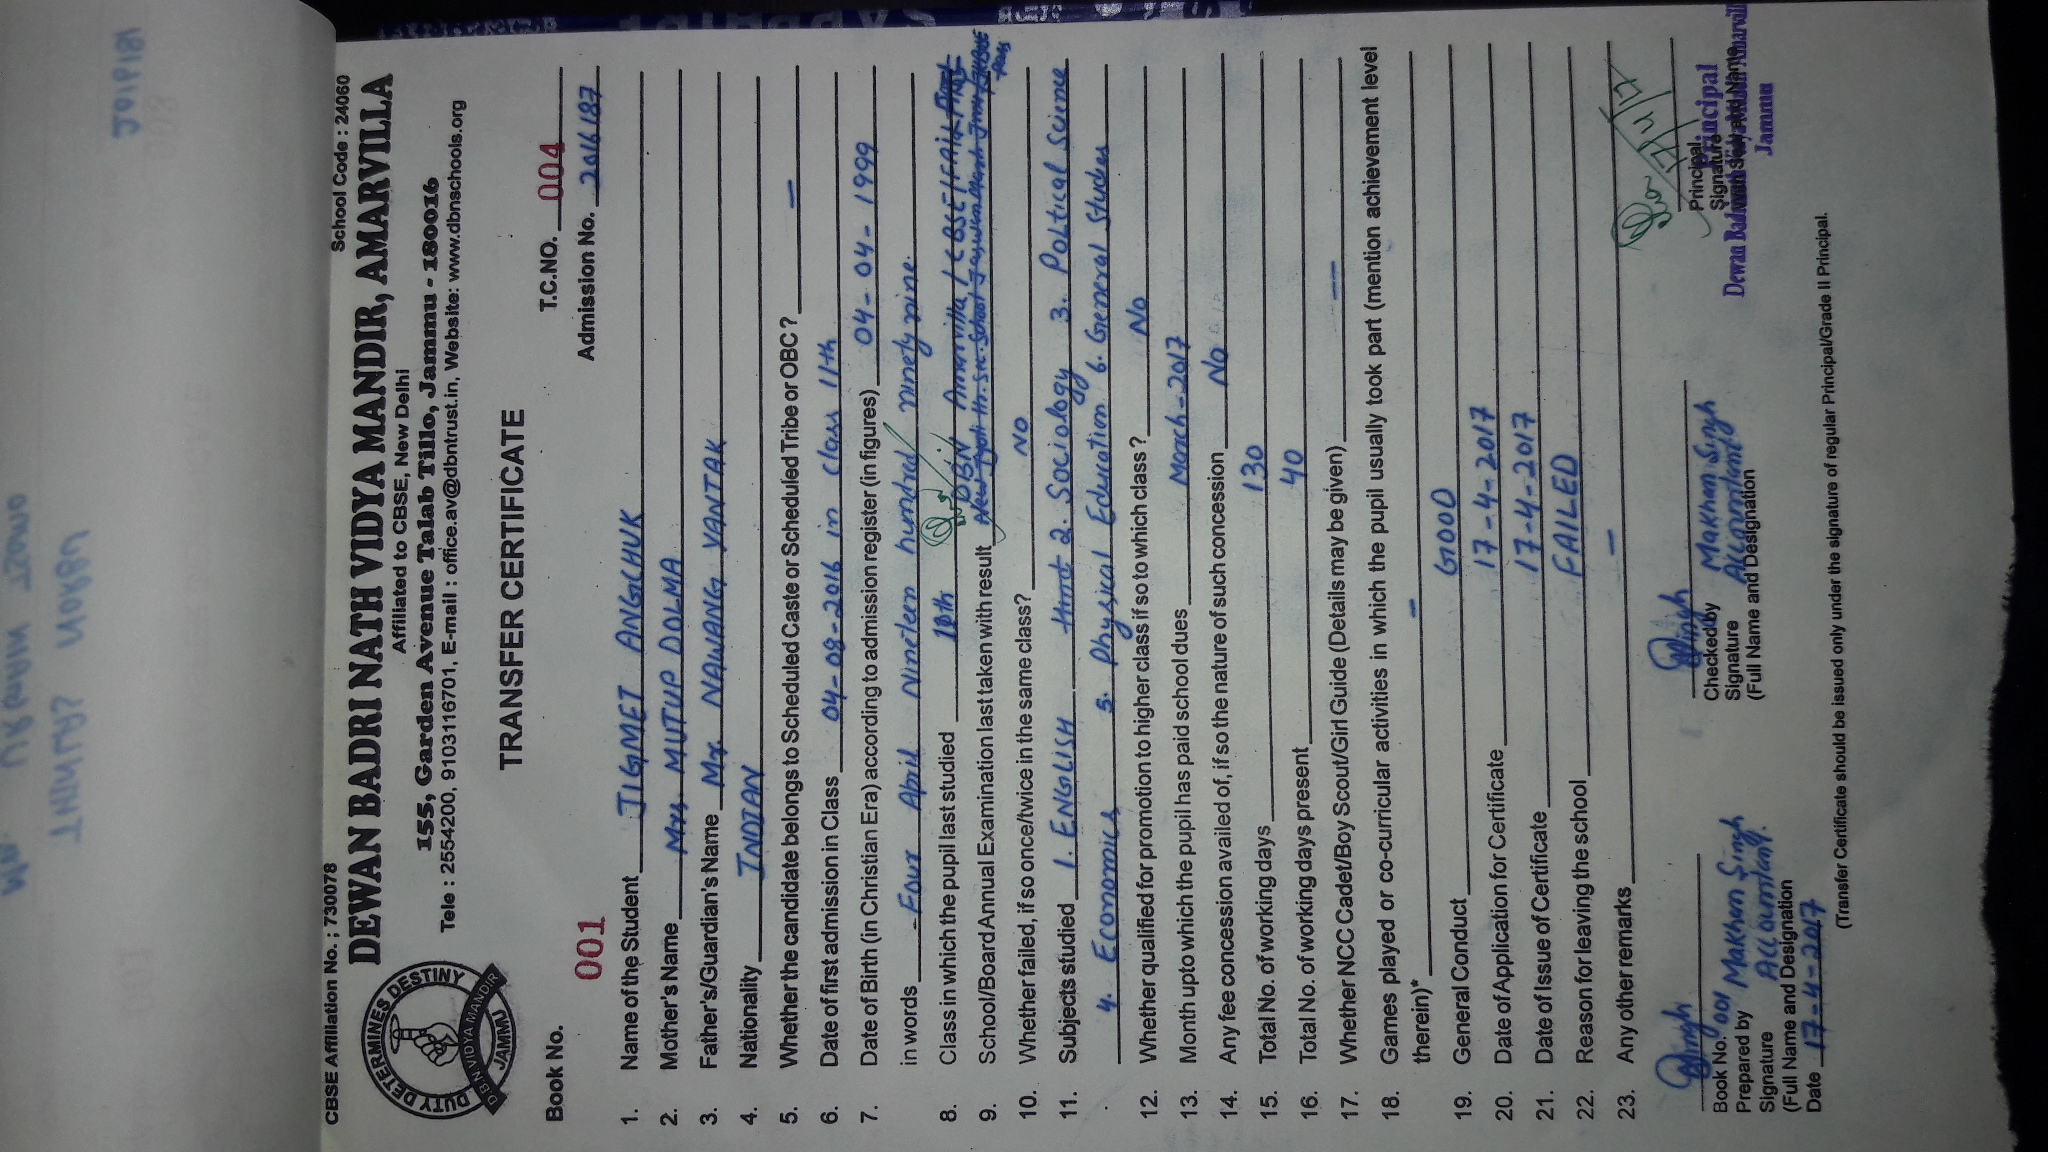 CBSE Affiliation No. ; 730078 School Code : 24060
DEWAN BADRI NATH VIDYA MANDIR, AMARVILLA
Affiliated to CBSE, New Delhi
155, Garden Avenue Talab Tillo, Jammu - 180016
Tele : 2554200, 9103116701, E-mail : office.av@dbntrust.in, Website: www.dbnschools.org
DUTY DETERMINES DESTINY
D.B.N VIDYA MANDIR
JAMMU
TRANSFER CERTIFICATE
Book No. 001 T.C.NO. 004
Admission No. 2016187
1. Name of the Student JIGMET ANGCHUK
2. Mother's Name Mrs. MUTUP DOLMA
3. Father's/Guardian's Name Mr. NAWANG YANTAK
4. Nationality INDIAN
5. Whether the candidate belongs to Scheduled Caste or Scheduled Tribe or OBC ? —
6. Date of first admission in Class 04-08-2016 in class 11th
7. Date of Birth (in Christian Era) according to admission register (in figures) 04-04-1999
in words Four April Nineteen hundred ninety nine.
8. Class in which the pupil last studied
DBN Amarvilla / CBSE / FAIL
9. School/Board Annual Examination last taken with result
10. Whether failed, if so once/twice in the same class? NO
11. Subjects studied 1. ENGLISH 2. Sociology 3. Political Science
4. Economics 5. Physical Education 6. General Studies
12. Whether qualified for promotion to higher class if so to which class ? No
13. Month upto which the pupil has paid school dues March-2017
14. Any fee concession availed of, if so the nature of such concession No
15. Total No. of working days 130
16. Total No. of working days present 40
17. Whether NCC Cadet/Boy Scout/Girl Guide (Details may be given) —
18. Games played or co-curricular activities in which the pupil usually took part (mention achievement level
therein)* —
19. General Conduct GOOD
20. Date of Application for Certificate 17-4-2017
21. Date of Issue of Certificate 17-4-2017
22. Reason for leaving the school FAILED
23. Any other remarks —
Book No. 001
Prepared by Makhan Singh
Signature Accountant.
(Full Name and Designation
Date 17-4-2017
Checked by Makhan Singh
Signature Accountant
(Full Name and Designation
Principal
Signature
Principal
Jammu
(Transfer Certificate should be issued only under the signature of regular Principal/Grade II Principal.